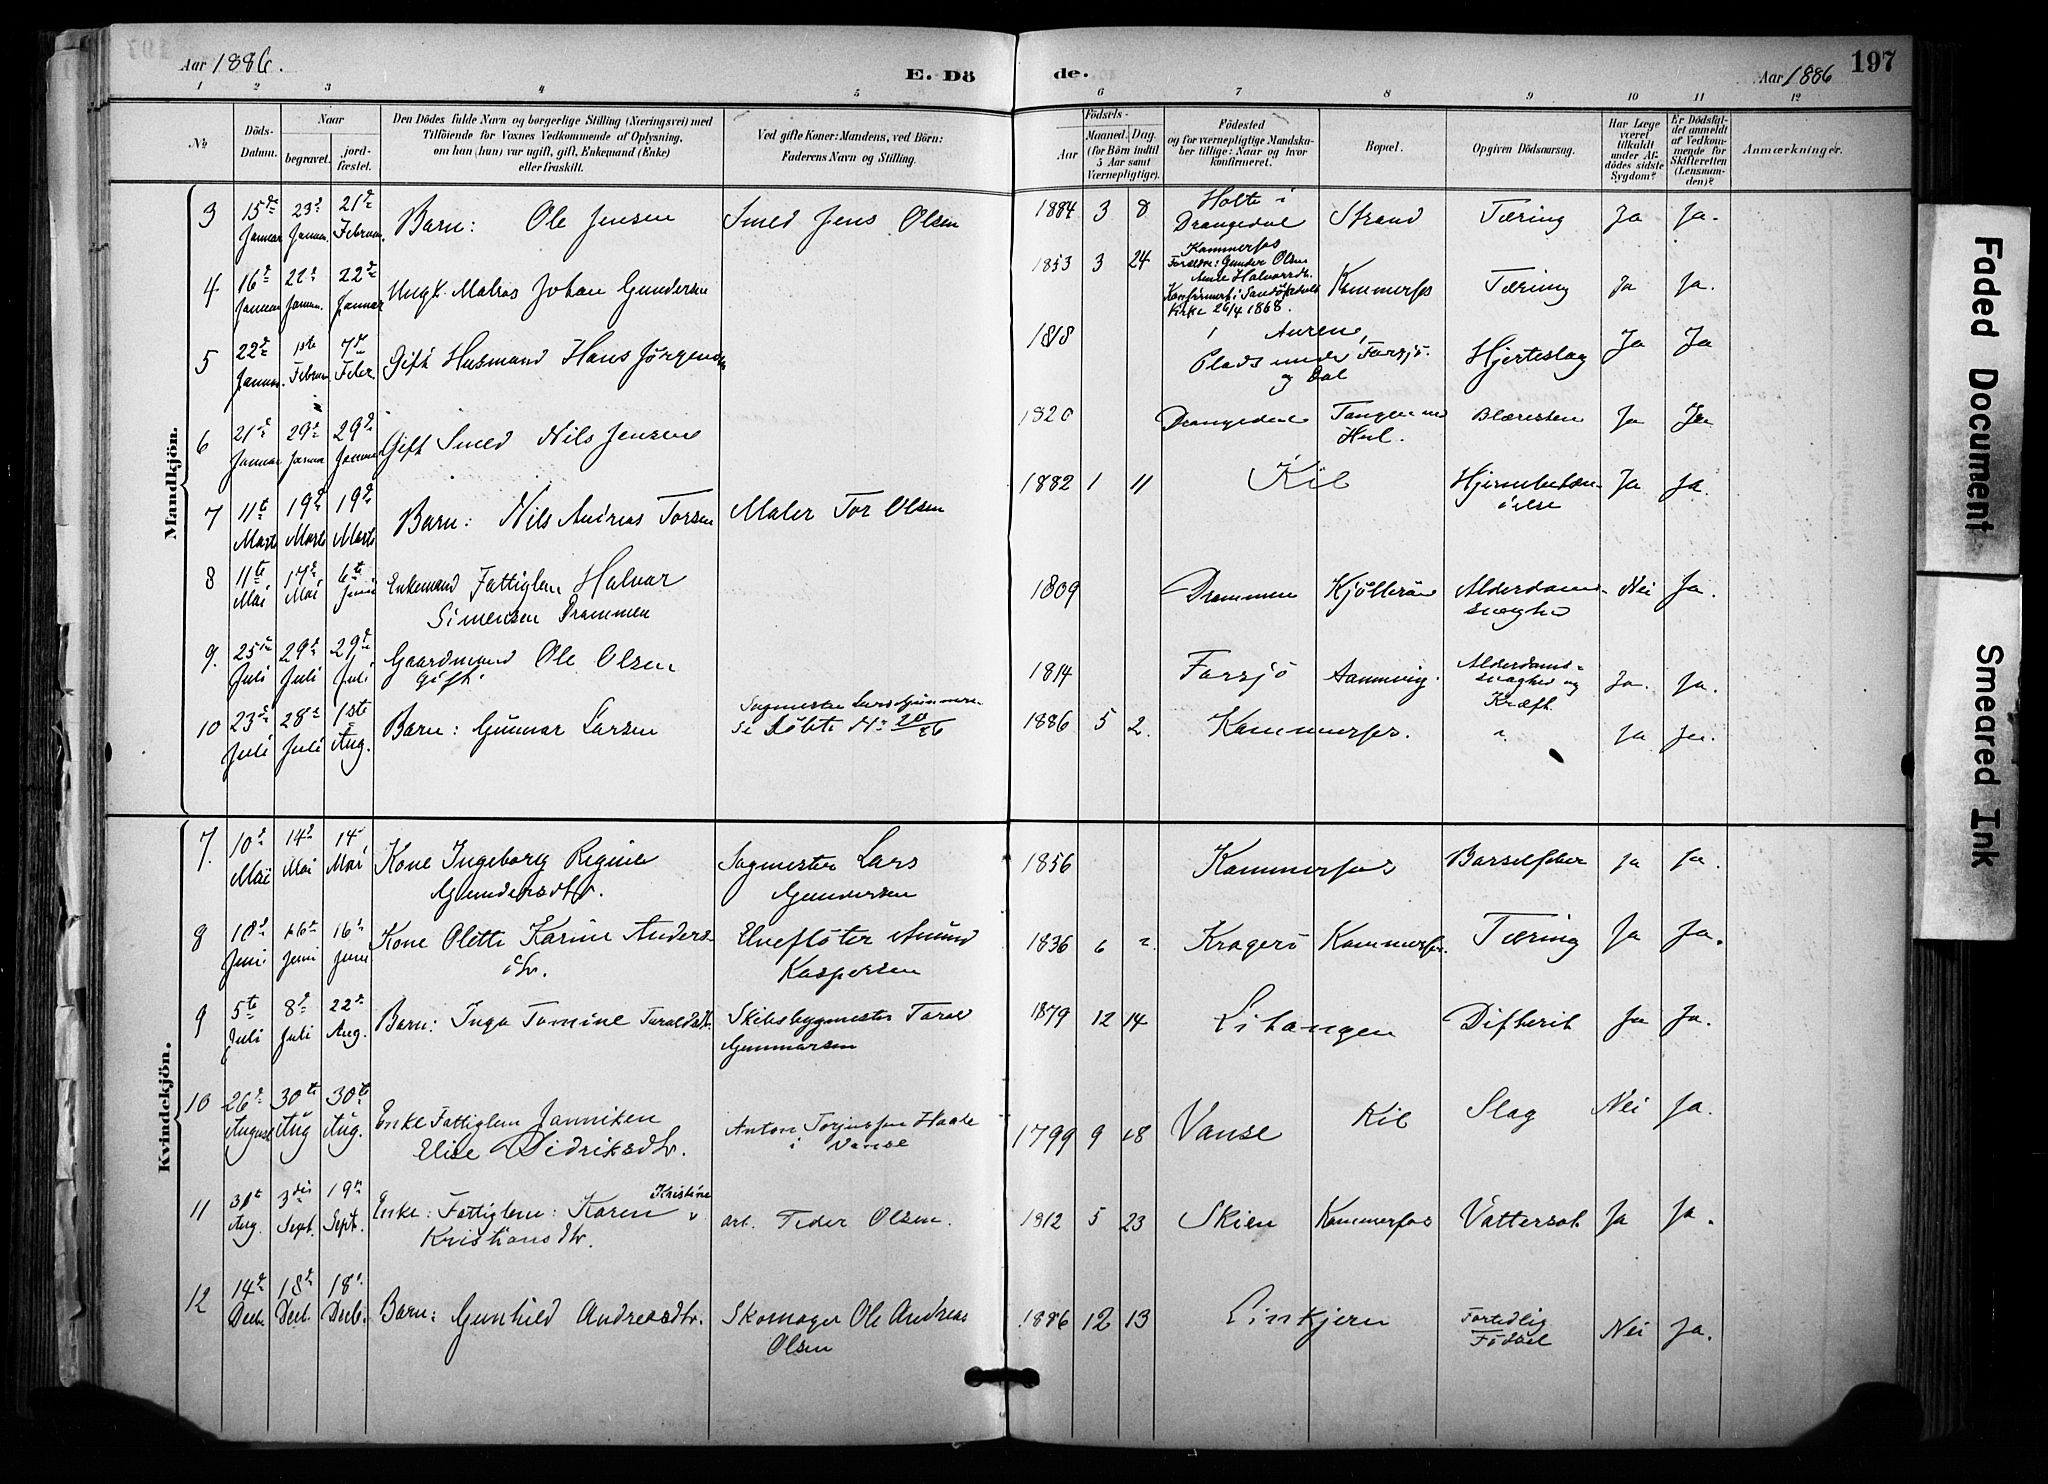 Aar 1886.
E. Dö
de.
Aar 1886
197
1 2 3 4 5 6 7 8 9 10 11 12
No
Döds-
Datum.
Naar
begravet.
jord-
fæstet.
Den Dödes fulde Navn og borgerlige Stilling (Næringsvei) med
Tilföiende for Voxnes Vedkommende af Oplysning,
om han (hun) var ugift, gift, Enkemand (Enke)
eller fraskilt.
Ved gifte Koner: Mandens, ved Börn:
Faderens Navn og Stilling.
Födsels-
Aar
Maaned. Dag.
(for Börn indtil
5 Aar samt
Værnepligtige).
Födested
og for værnepligtige Mandska-
ber tillige: Naar og hvor
konfirmeret.
Bopæl.
Opgiven Dödsaarsag.
Har Læge
været
tilkaldt
under Af-
dödes sidste
Sygdom?
Er Dödsfal-
det anmeldt
af Vedkom-
mende for
Skifteretten
(Lensman-
den)?
Anmærkninger.
Mandkjön.
3 15de Januar 23de Januar 21de Februar Barn: Ole Jensen Smed Jens Olsen 1884 3 8 Holte i Drangedal Strand Tæring Ja Ja.
4 16de Januar 22de Januar 22de Januar Ungk. Matros Johan Gundersen 1853 3 24 Kammerfos
Forældre: Gunder Olsen
Anne Halvorsdtr.
Konfirmert i Sandökedals
Kirke 26/4 1868. Kammerfos Tæring Ja Ja.
5 22de Januar 1ste Februar 7de Febr. Gift Husmand Hans Jørgensen 1818 Auren,
Plads under Farsjö.
og Dal Hjerteslag Ja Ja
6 21de Januar 29de Januar 29de Januar Gift Smed Nils Jensen 1820 Drangedal Tangen Blæresten Ja Ja
7 11te Marts 19de Marts 19de Marts Barn: Nils Andreas Torsen Maler Tor Olsen 1882 1 11 Kil Hjernebetæn-
delse Ja Ja.
8 11te Mai 17de Mai 6te Juni Enkemand Fattiglem Halvor
Simensen Drammen 1809 Drammen Alderdoms-
svaghed Nei Ja.
9. 25de Juli 29de Juli 29de Juli Gaardmand Ole Olsen
Gift. 1814 Farsjö Alderdoms-
svaghed og
Kræft. Ja. Ja.
10 23de Juli 28de Juli 1ste Aug. Barn: Gunnar Larsen Sagmester Lars
Se Döbte No 20/86 1886 5 2. Kammerfos. Ja Ja.
Kvindekjön.
7. 10de Mai 14de Mai 14 Mai Kone Ingeborg Regine
Gundersdtr. Sagmester Lars
Gundersen 1856 Kammerfos Barselfeber Ja Ja.
8 10de Juni 16de Juni 16de Juni Kone Olette Karine Anders-
dtr. Elvefløter Amund
Kaspersen 1836 6 2. Kragerö Kammerfos. Tæring Ja Ja.
9 5te Juli 8de Juli 22de Aug. Barn: Inga Tomine Taraldsdtr. Skibsbygmester Taral
Gunnarsen 1879 12 14 Litangen Difterit Ja Ja.
10 26de August 30te Aug 30te Aug. Enke Fattiglem Janniken
Elise Didriksdtr. Anton Torjussen
i Vanse 1799 9 18 Vanse Kil Slag Nei Ja.
11 31te Aug. 3die Sept. 19de Sept. Enke: Fattiglem: Karen Kristine
Kristiansdtr. arb. Peder Olsen. 1812 5 23 Skien Kammerfos Vattersot Ja Ja.
12 14de Decb. 18de Decb. 18de Decb. Barn: Gunhild Andreasdtr. Skomager Ole Andreas
Olsen 1886 12 13 Linkjern Fortidlig
Födsel Nei Ja.
Faded Document
Smeared Ink